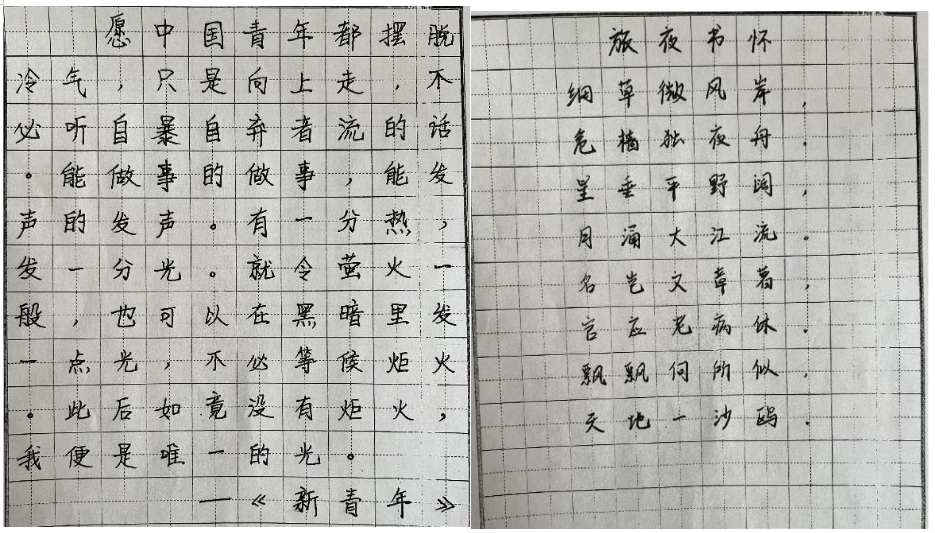 愿中国青年都摆脱
冷气，只是向上走，不
必听自暴自弃者流的话
。能做事的做事，能发
声的发声。有一分热，
发一分光。就令萤火一
般，也可以在黑暗里发
一点光，不必等候炬火
。此后如竟没有炬火，
我便是唯一的光。
—《新青年》
旅夜书怀
细草微风岸，
危樯独夜舟。
星垂平野阔，
月涌大江流。
名岂文章著，
官应老病休。
飘飘何所似，
天地一沙鸥。